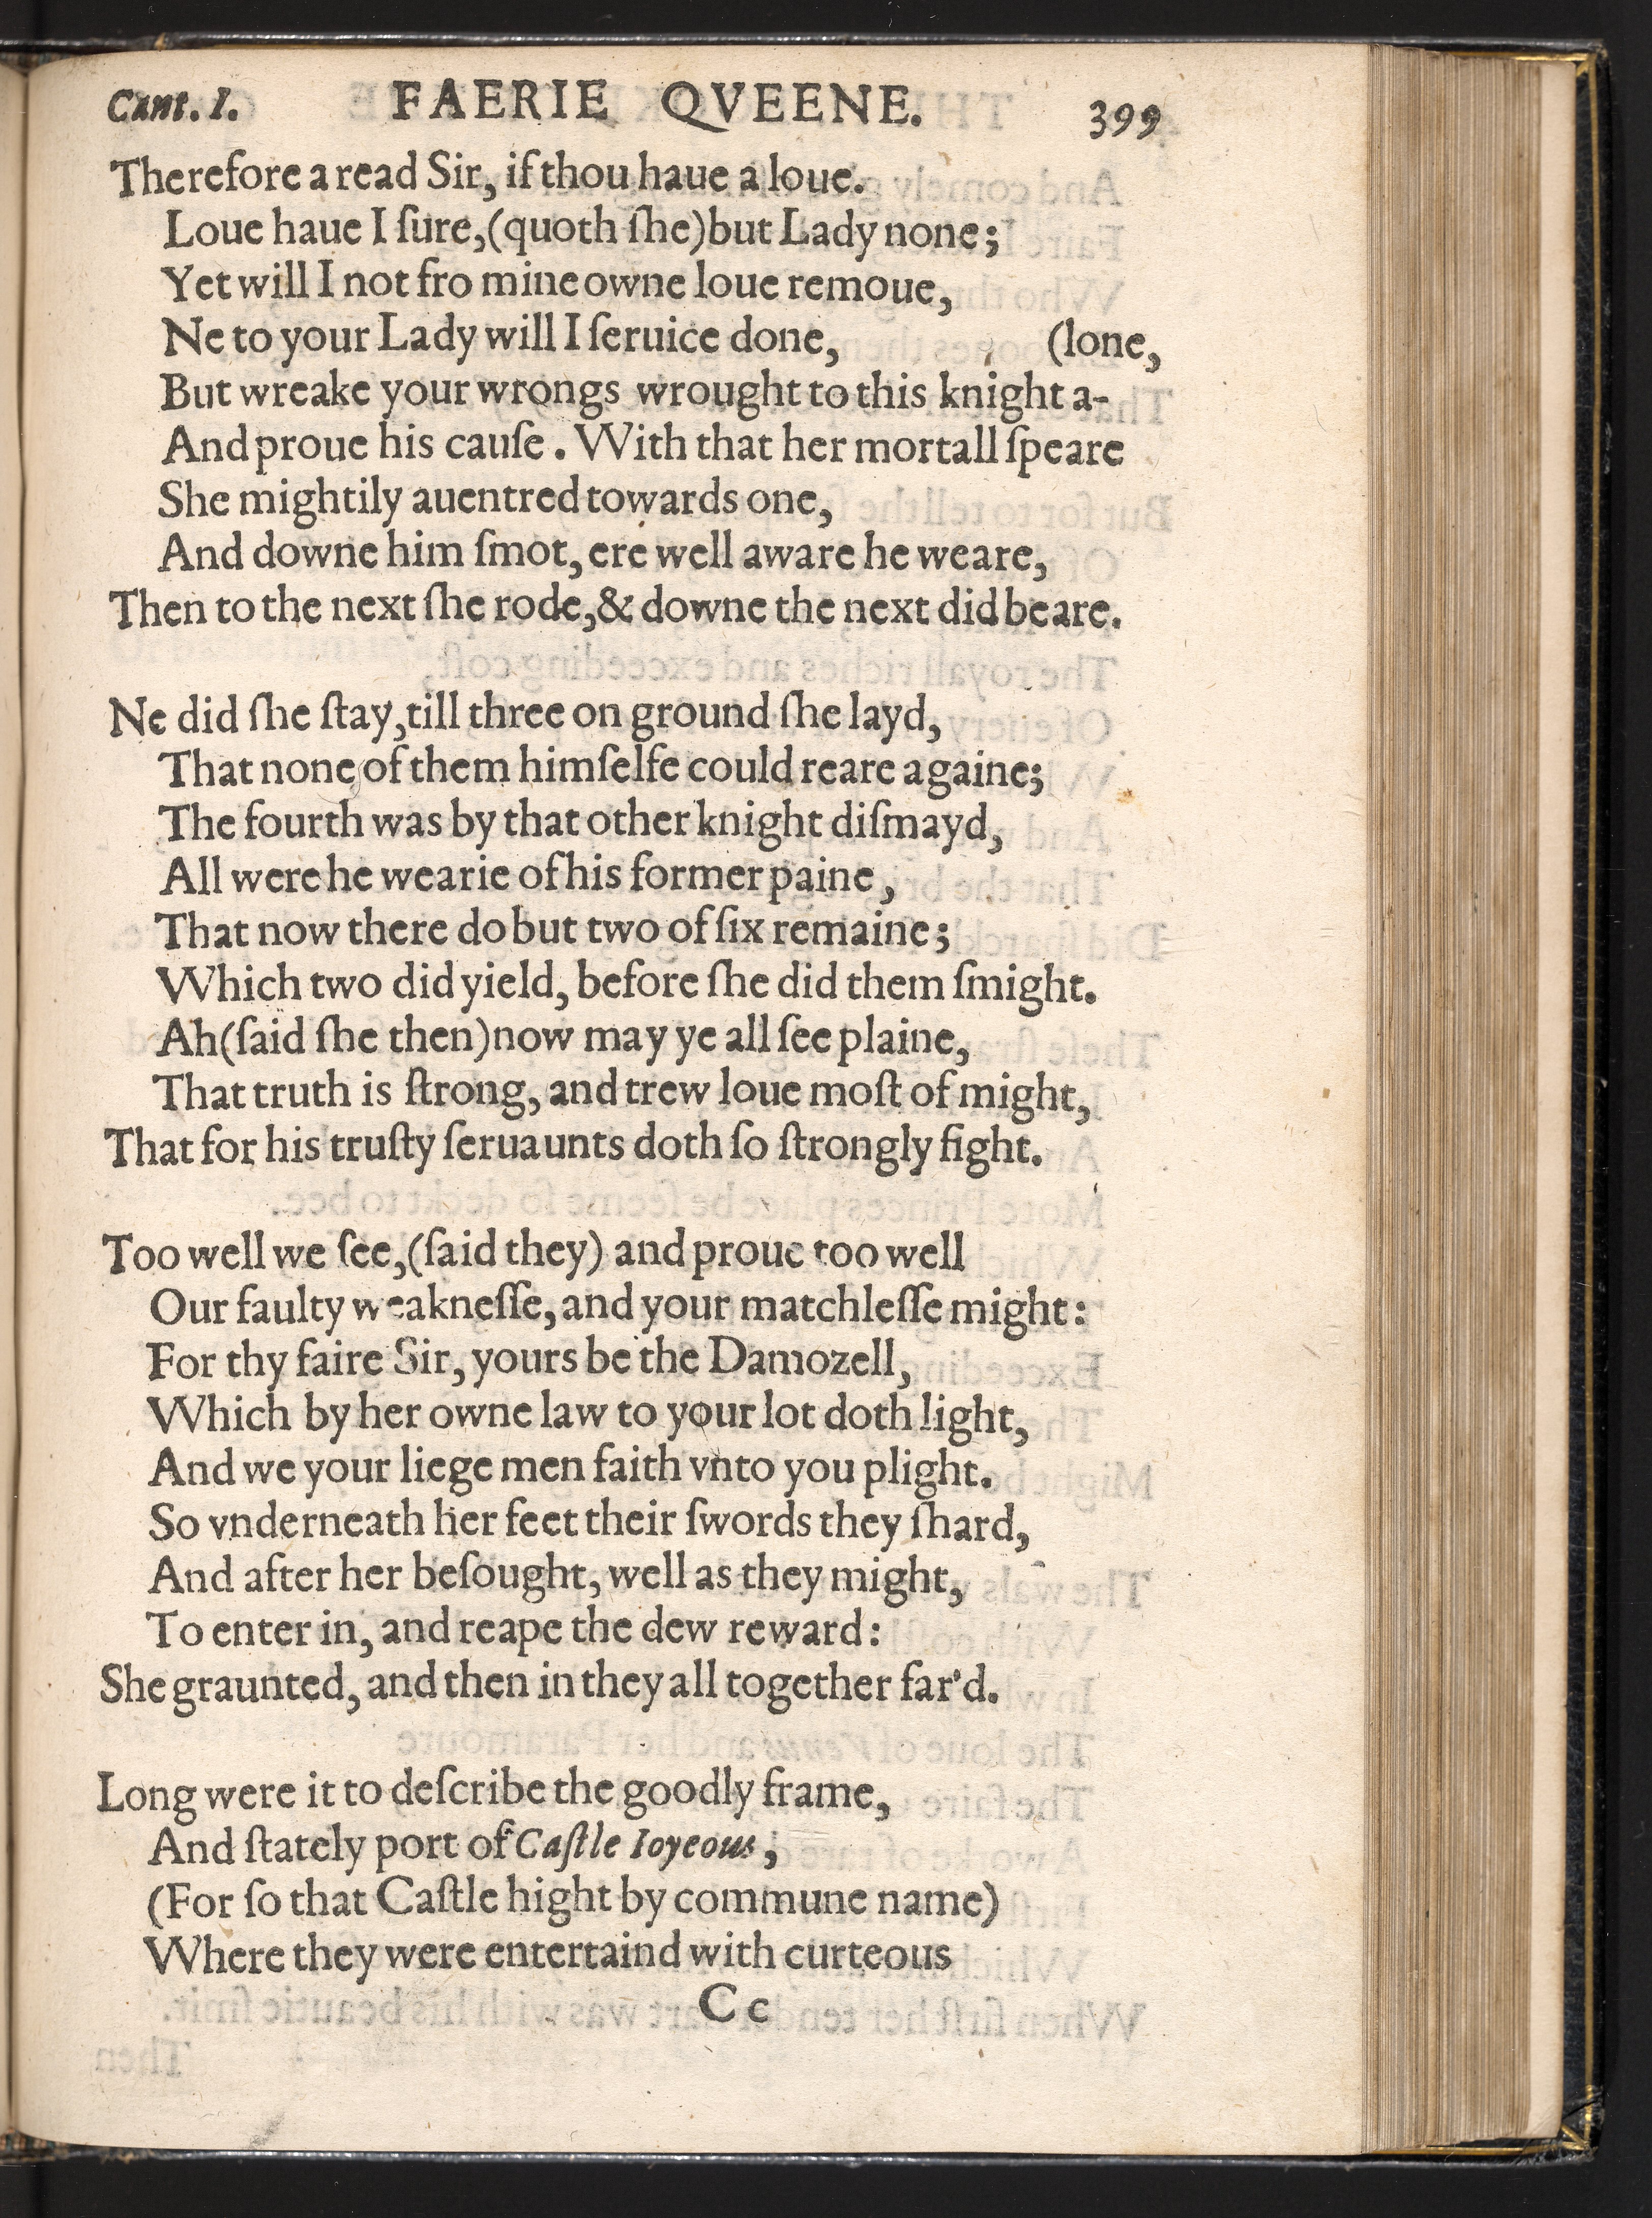 Cant. I. FAERIE QVEENE. 399
Therefore aread Sir, if thou haue a loue.
Loue haue I ſure, (quoth ſhe) but Lady none;
Yet will I not fro mine owne loue remoue,
Ne to your Lady will I ſeruice done, (lone,
But wreake your wrongs wrought to this knight a-
And proue his cauſe. With that her mortall ſpeare
She mightily auentred towards one,
And downe him ſmot, ere well aware he weare,
Then to the next ſhe rode, & downe the next did beare.
Ne did ſhe ſtay, till three on ground ſhe layd,
That none of them himſelfe could reare againe;
The fourth was by that other knight diſmayd,
All were he wearie of his former paine,
That now there do but two of ſix remaine;
Which two did yield, before ſhe did them ſmight.
Ah (ſaid ſhe then) now may ye all ſee plaine,
That truth is ſtrong, and trew loue moſt of might,
That for his truſty ſeruaunts doth ſo ſtrongly fight.
Too well we ſee, (ſaid they) and proue too well
Our faulty weakneſſe, and your matchleſſe might:
For thy faire Sir, yours be the Damozell,
Which by her owne law to your lot doth light,
And we your liege men faith vnto you plight.
So vnderneath her feet their ſwords they ſhard,
And after her beſought, well as they might,
To enter in, and reape the dew reward:
She graunted, and then in they all together far'd.
Long were it to deſcribe the goodly frame,
And ſtately port of Caſtle Ioyeous,
(For ſo that Caſtle hight by commune name)
Where they were entertaind with curteous
Cc